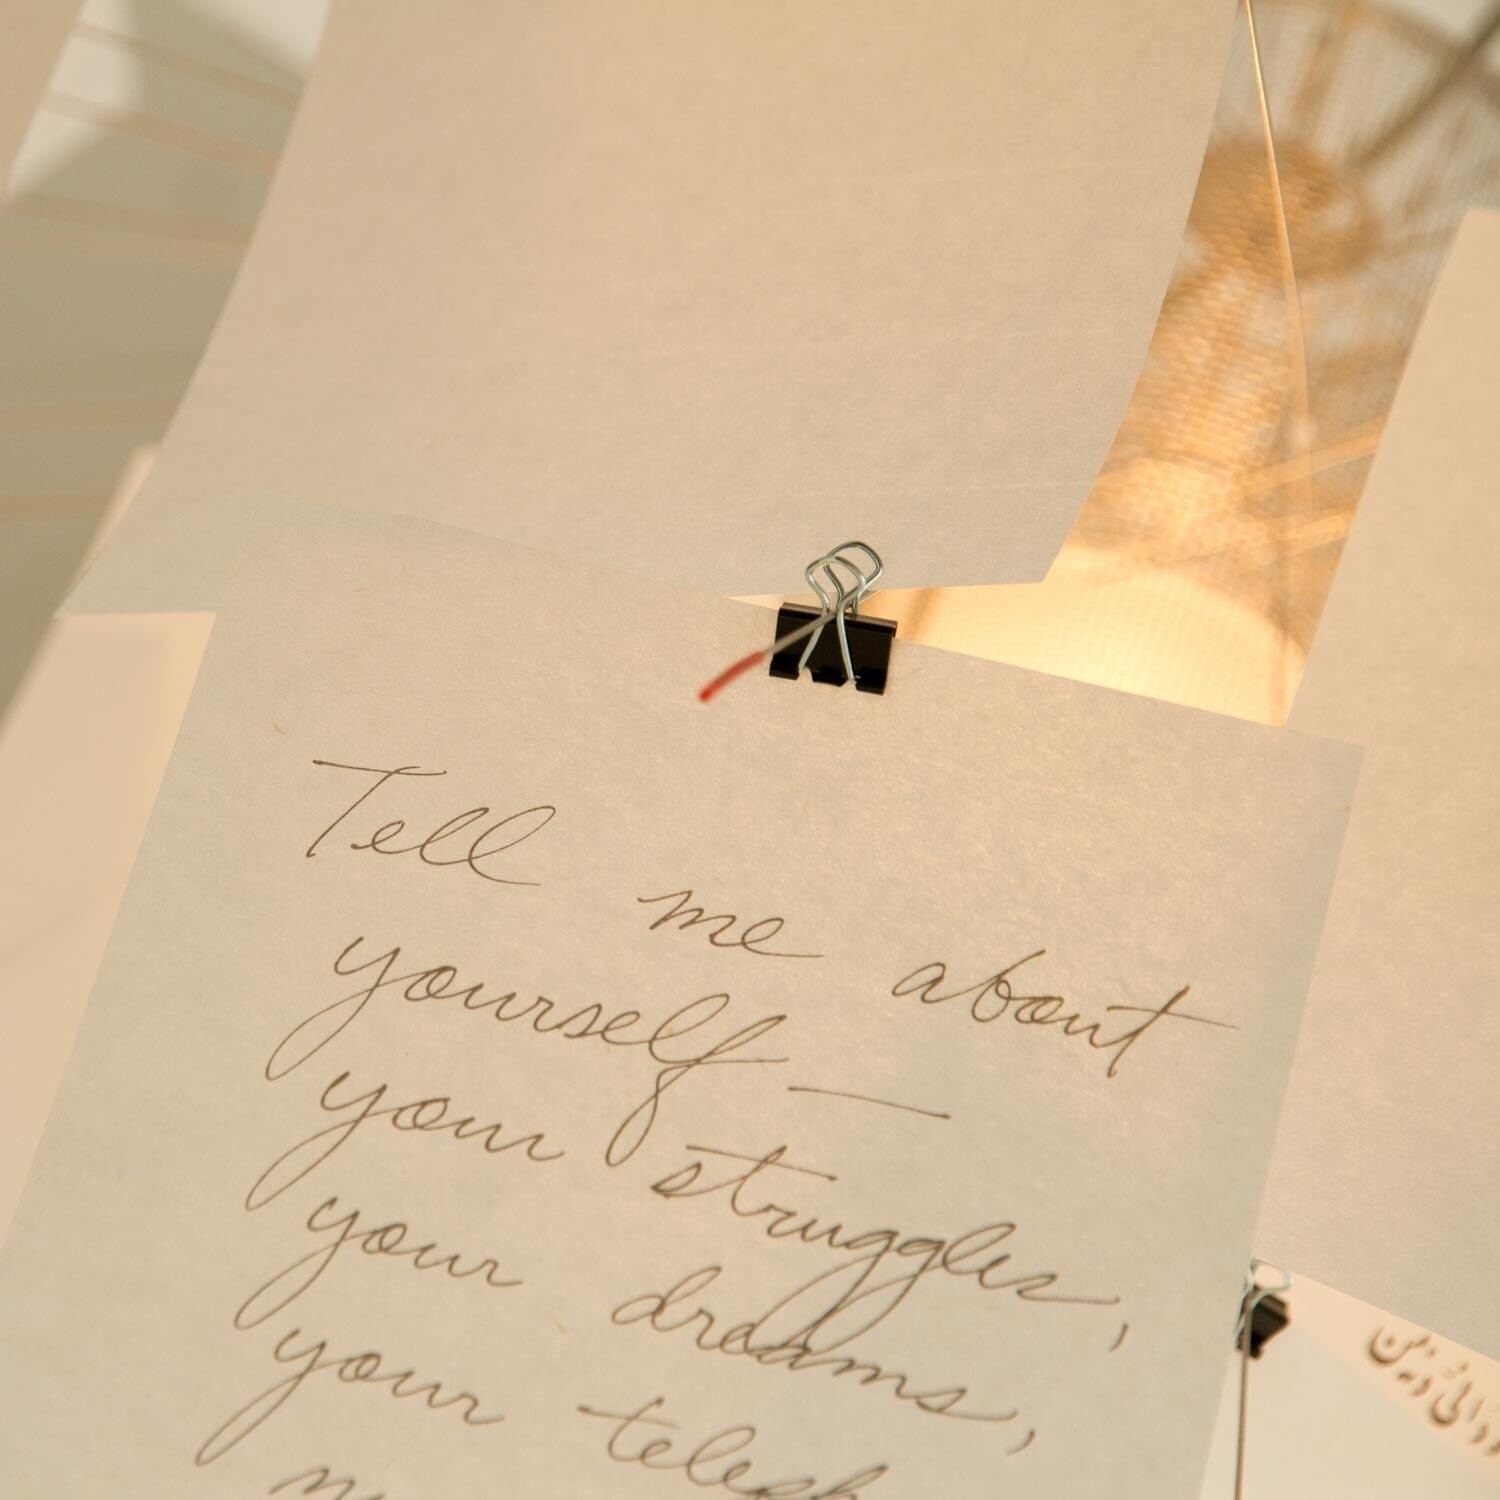 Tell me about
yourself —
your struggles,
your dreams,
your teleph